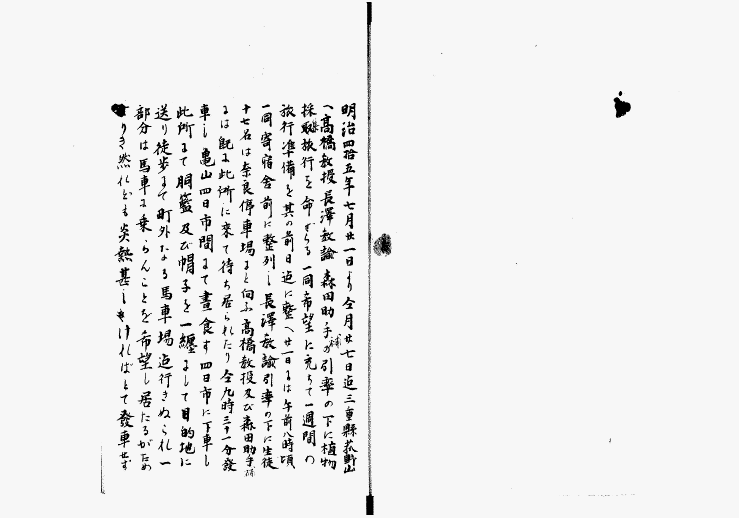 明治四拾五年七月廿一日より仝月廿七日迄三重縣菰野山
へ高橋教授長澤教諭森田助手補が引率の下に植物
採集旅行を命ぜらる一同希望に充ちて一週間の
旅行準備を其の前日迄に整へ廿一日には午前八時頃
一同寄宿舎前に整列し長澤教諭引率の下に生徒
十七名は奈良停車場さと向ふ高橋教授及び森田助手補
には既に此所に来て待ち居られたり仝九時三十一分發
車し亀山四日市間にて晝食す四日市に下車し
此所にて胴籃及び帽子を一纏にして目的地に
送り徒歩にて町外なる馬車場迄行きぬられ一
部分は馬車に乗らんことを希望し居たるがため
りき然れども炎熱甚しければとて發車せず